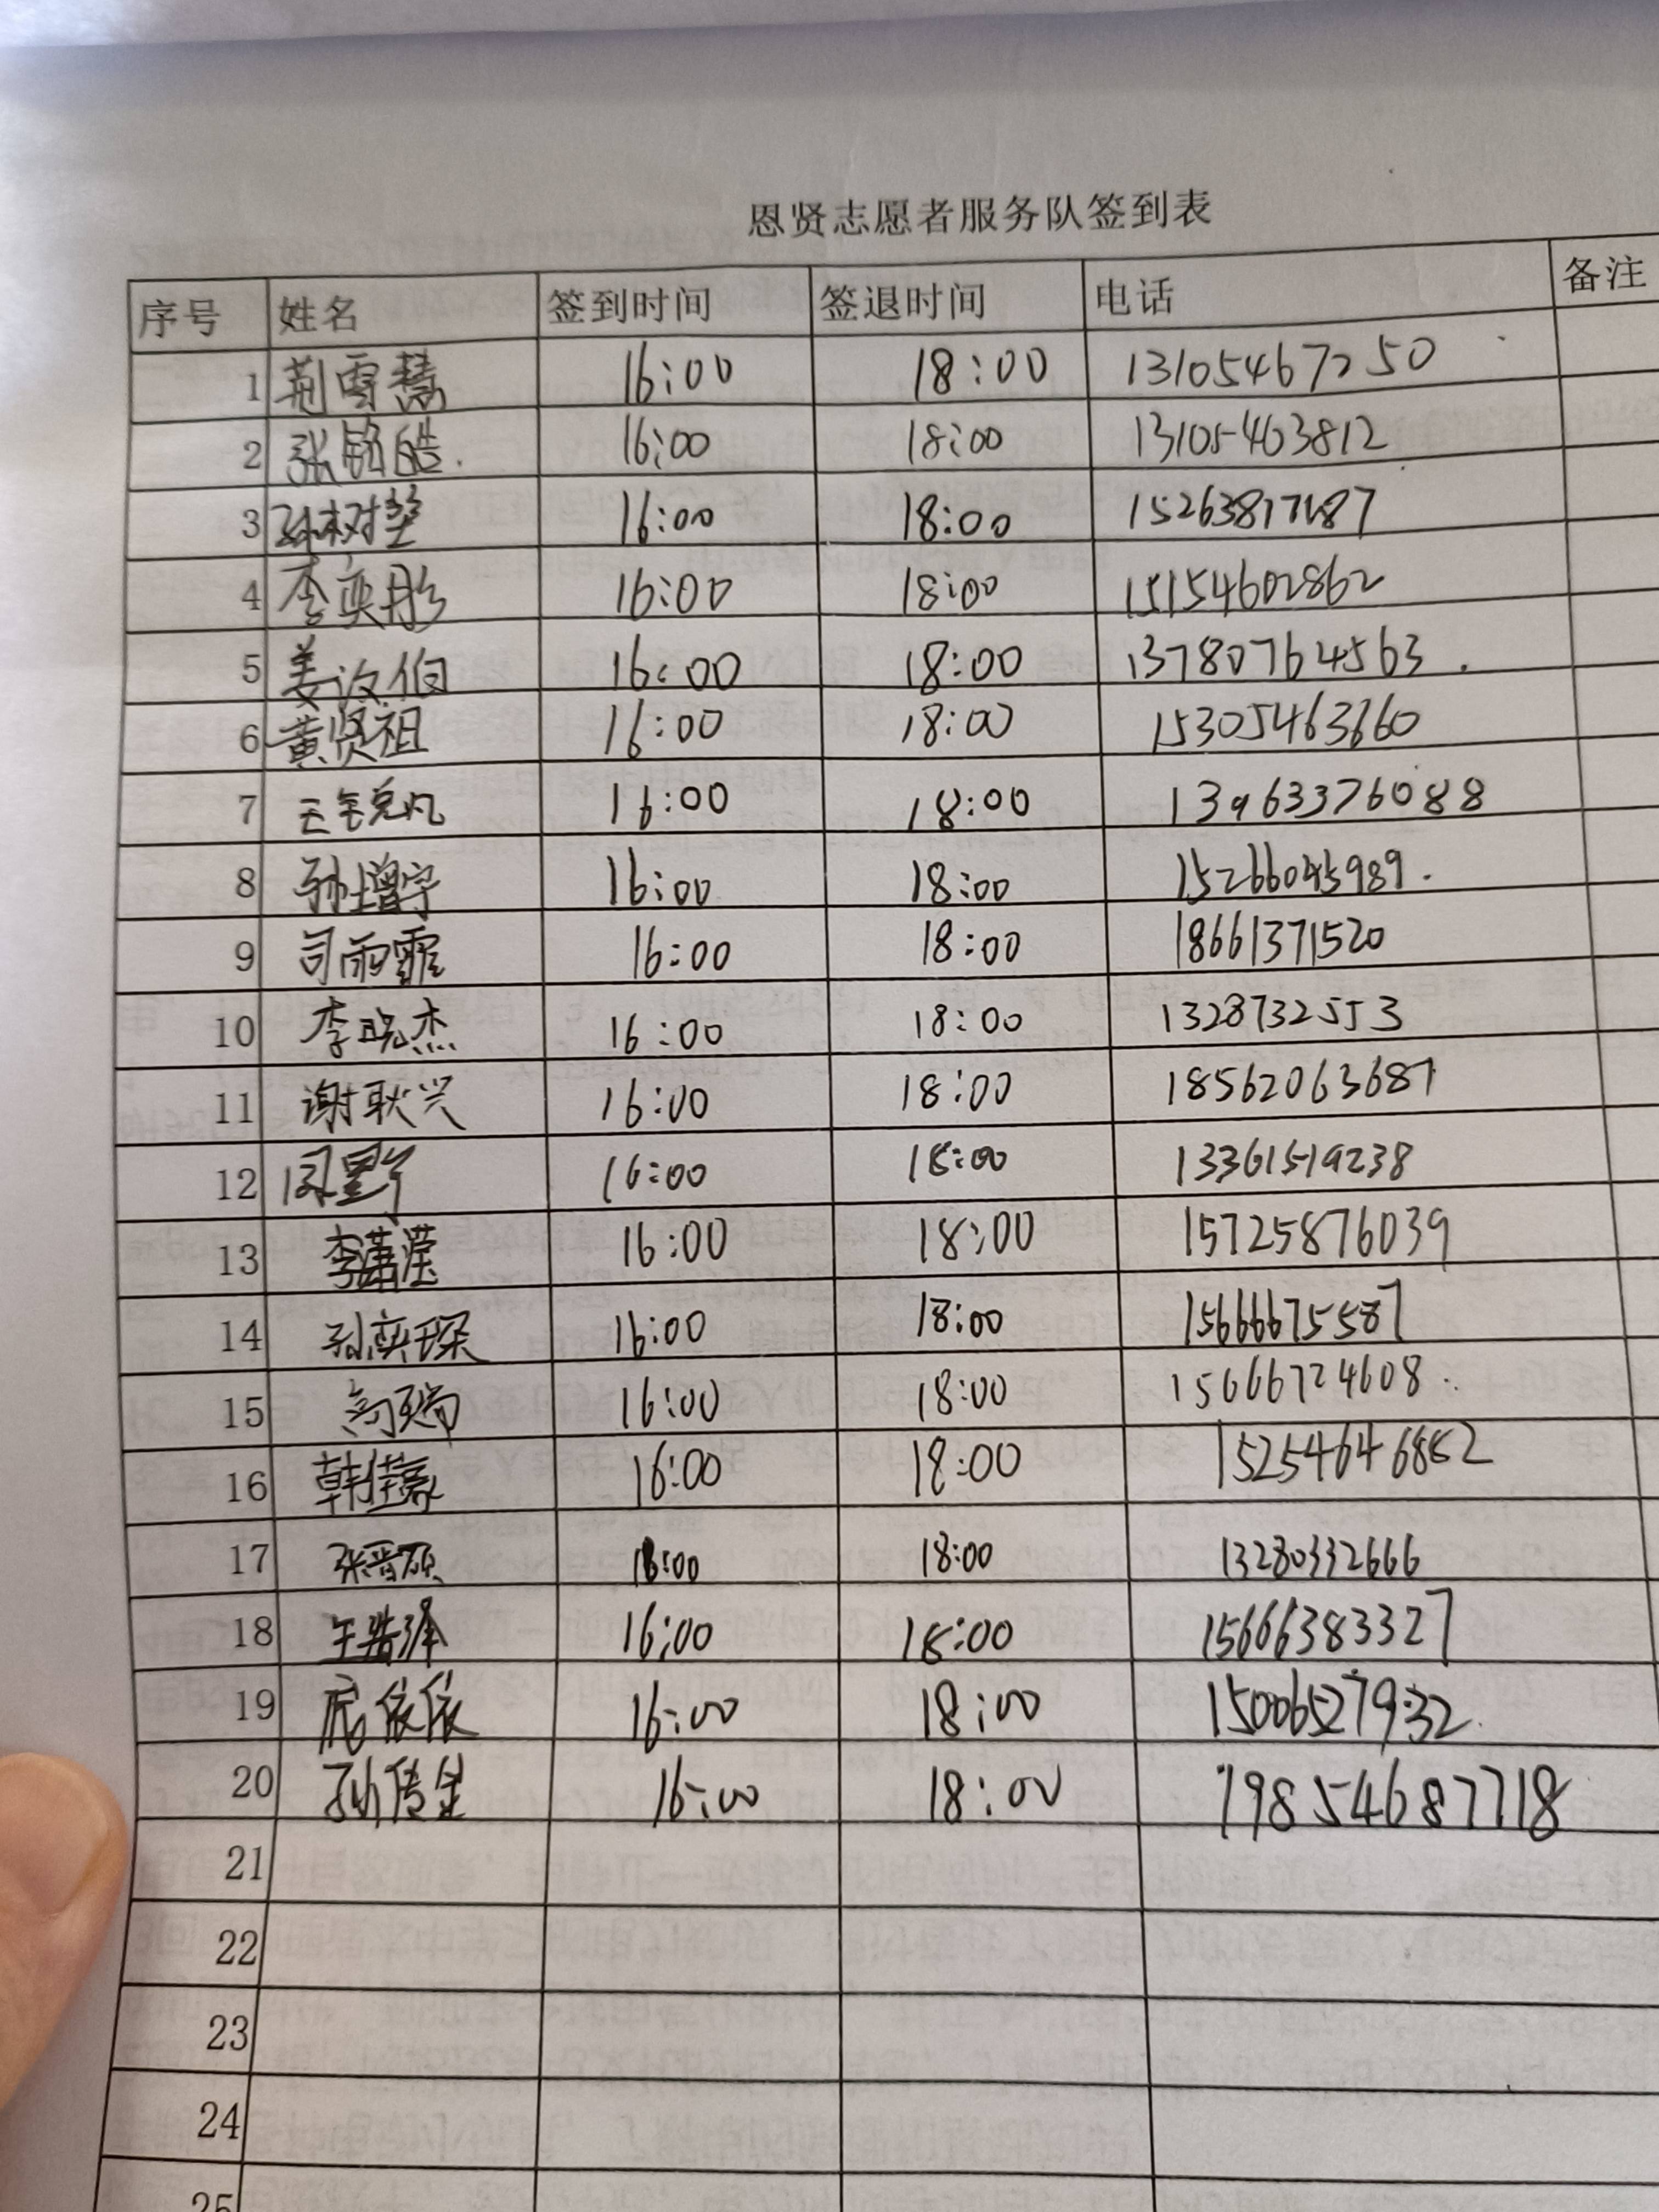 恩贤志愿者服务队签到表
序号 姓名 签到时间 签退时间 电话 备注
1 荆雪慧 16:00 18:00 13105467250
2 张铭皓 16:00 18:00 13105463812
3 孙树堂 16:00 18:00
4 李奕彤 16:00 18:00 15154602862
5 姜汶伯 16:00 18:00 13780764563
6 黄贤祖 16:00 18:00 15305463660
7 16:00 18:00 13963376088
8 孙增宇 16:00 18:00 15266045989
9 司雨霏 16:00 18:00 18661371520
10 李晓杰 16:00 18:00 1328732553
11 谢耿兴 16:00 18:00 18562063687
12 16:00 18:00 13361519238
13 李潇滢 16:00 18:00 15725876039
14 孙奕琛 16:00 18:00 15666675587
15 高瑞 16:00 18:00 15666724608
16 韩佳豪 16:00 18:00 15254646882
17 张晋硕 16:00 18:00 13280332666
18 王浩泽 16:00 18:00 15666383327
19 依依 16:00 18:00 15006527932
20 孙传金 16:00 18:00 19854687718
21
22
23
24
25